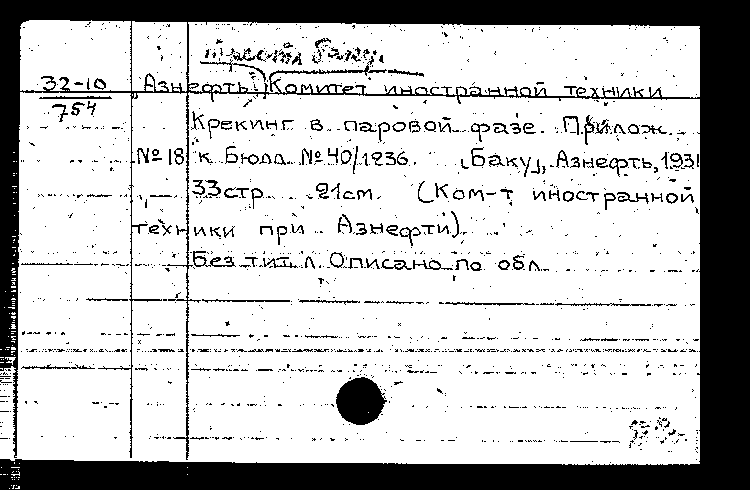 трест Баку.
32-10 Азнефть. Комитет иностранной техники
754
Крекинг в паровой фазе. Прилож.
№18 к Бюлл. №40/1236. [Баку], Азнефть, 1931
33стр. 21см. (Ком-т иностранной
техники при Азнефти).
Без тит. л. Описано по обл.